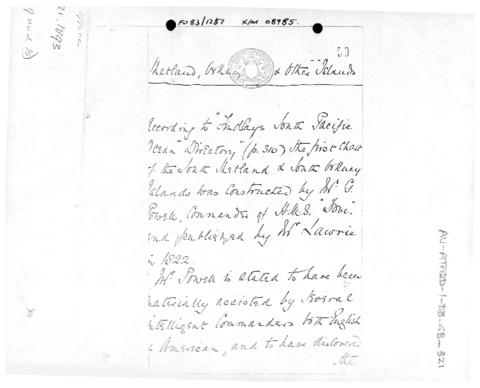 FO83/1287 X/M 08985.
21.1893
53
Shetland, Orkney & Other Islands
According to "Findlay's South Pacific
Ocean Directory" (p. 310) the first Chart
of the South Shetland & South Orkney
Islands was constructed by Mr. G.
Powell, Commander of H.M.S. "Dove".
and published by Mr. Lawrie
in 1822.
Mr. Powell is stated to have been
materially assisted by several
intelligent Commanders both English
& American, and to have discovered
the